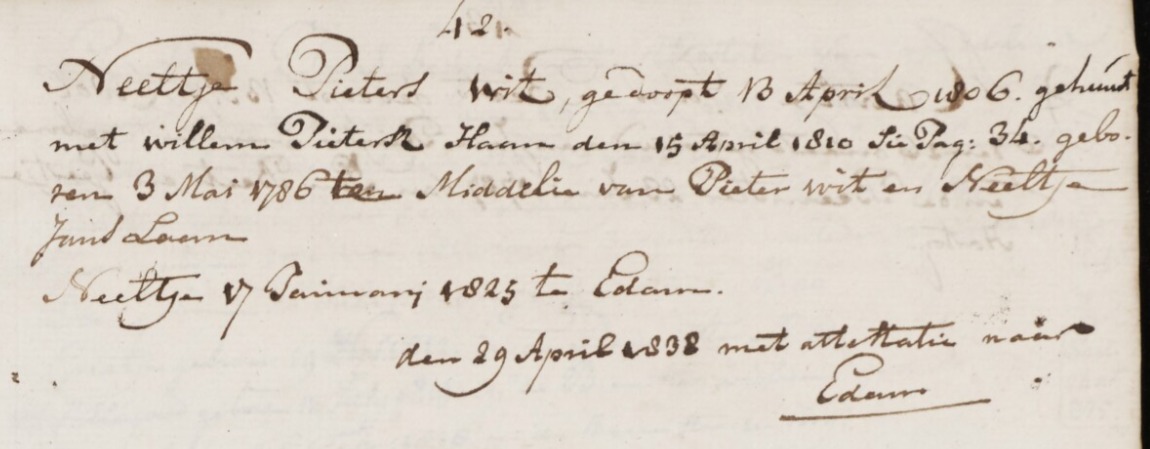 42.
Neeltje Pieters wit, gedoopt 13 April 1806. gehuwt
met willem Pietersz Haan den 15 April 1810 Sie Pag: 34. gebo-
ren 3 Mai 1786 te Middelie van Pieter wit en Neeltje
Jans Laan
Neeltje 17 Januarij 1825 te Edam.
den 29 April 1838 met attestatie naar
Edam